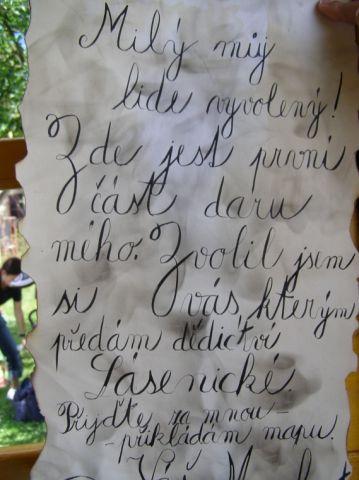 Milý můj
lide vyvolený!
Zde jest první
část daru
mého. Zvolil jsem
si vás, kterým
předám dědictví
Lásenické.
Přijďte za mnou -
- přikládám mapu.
Váš